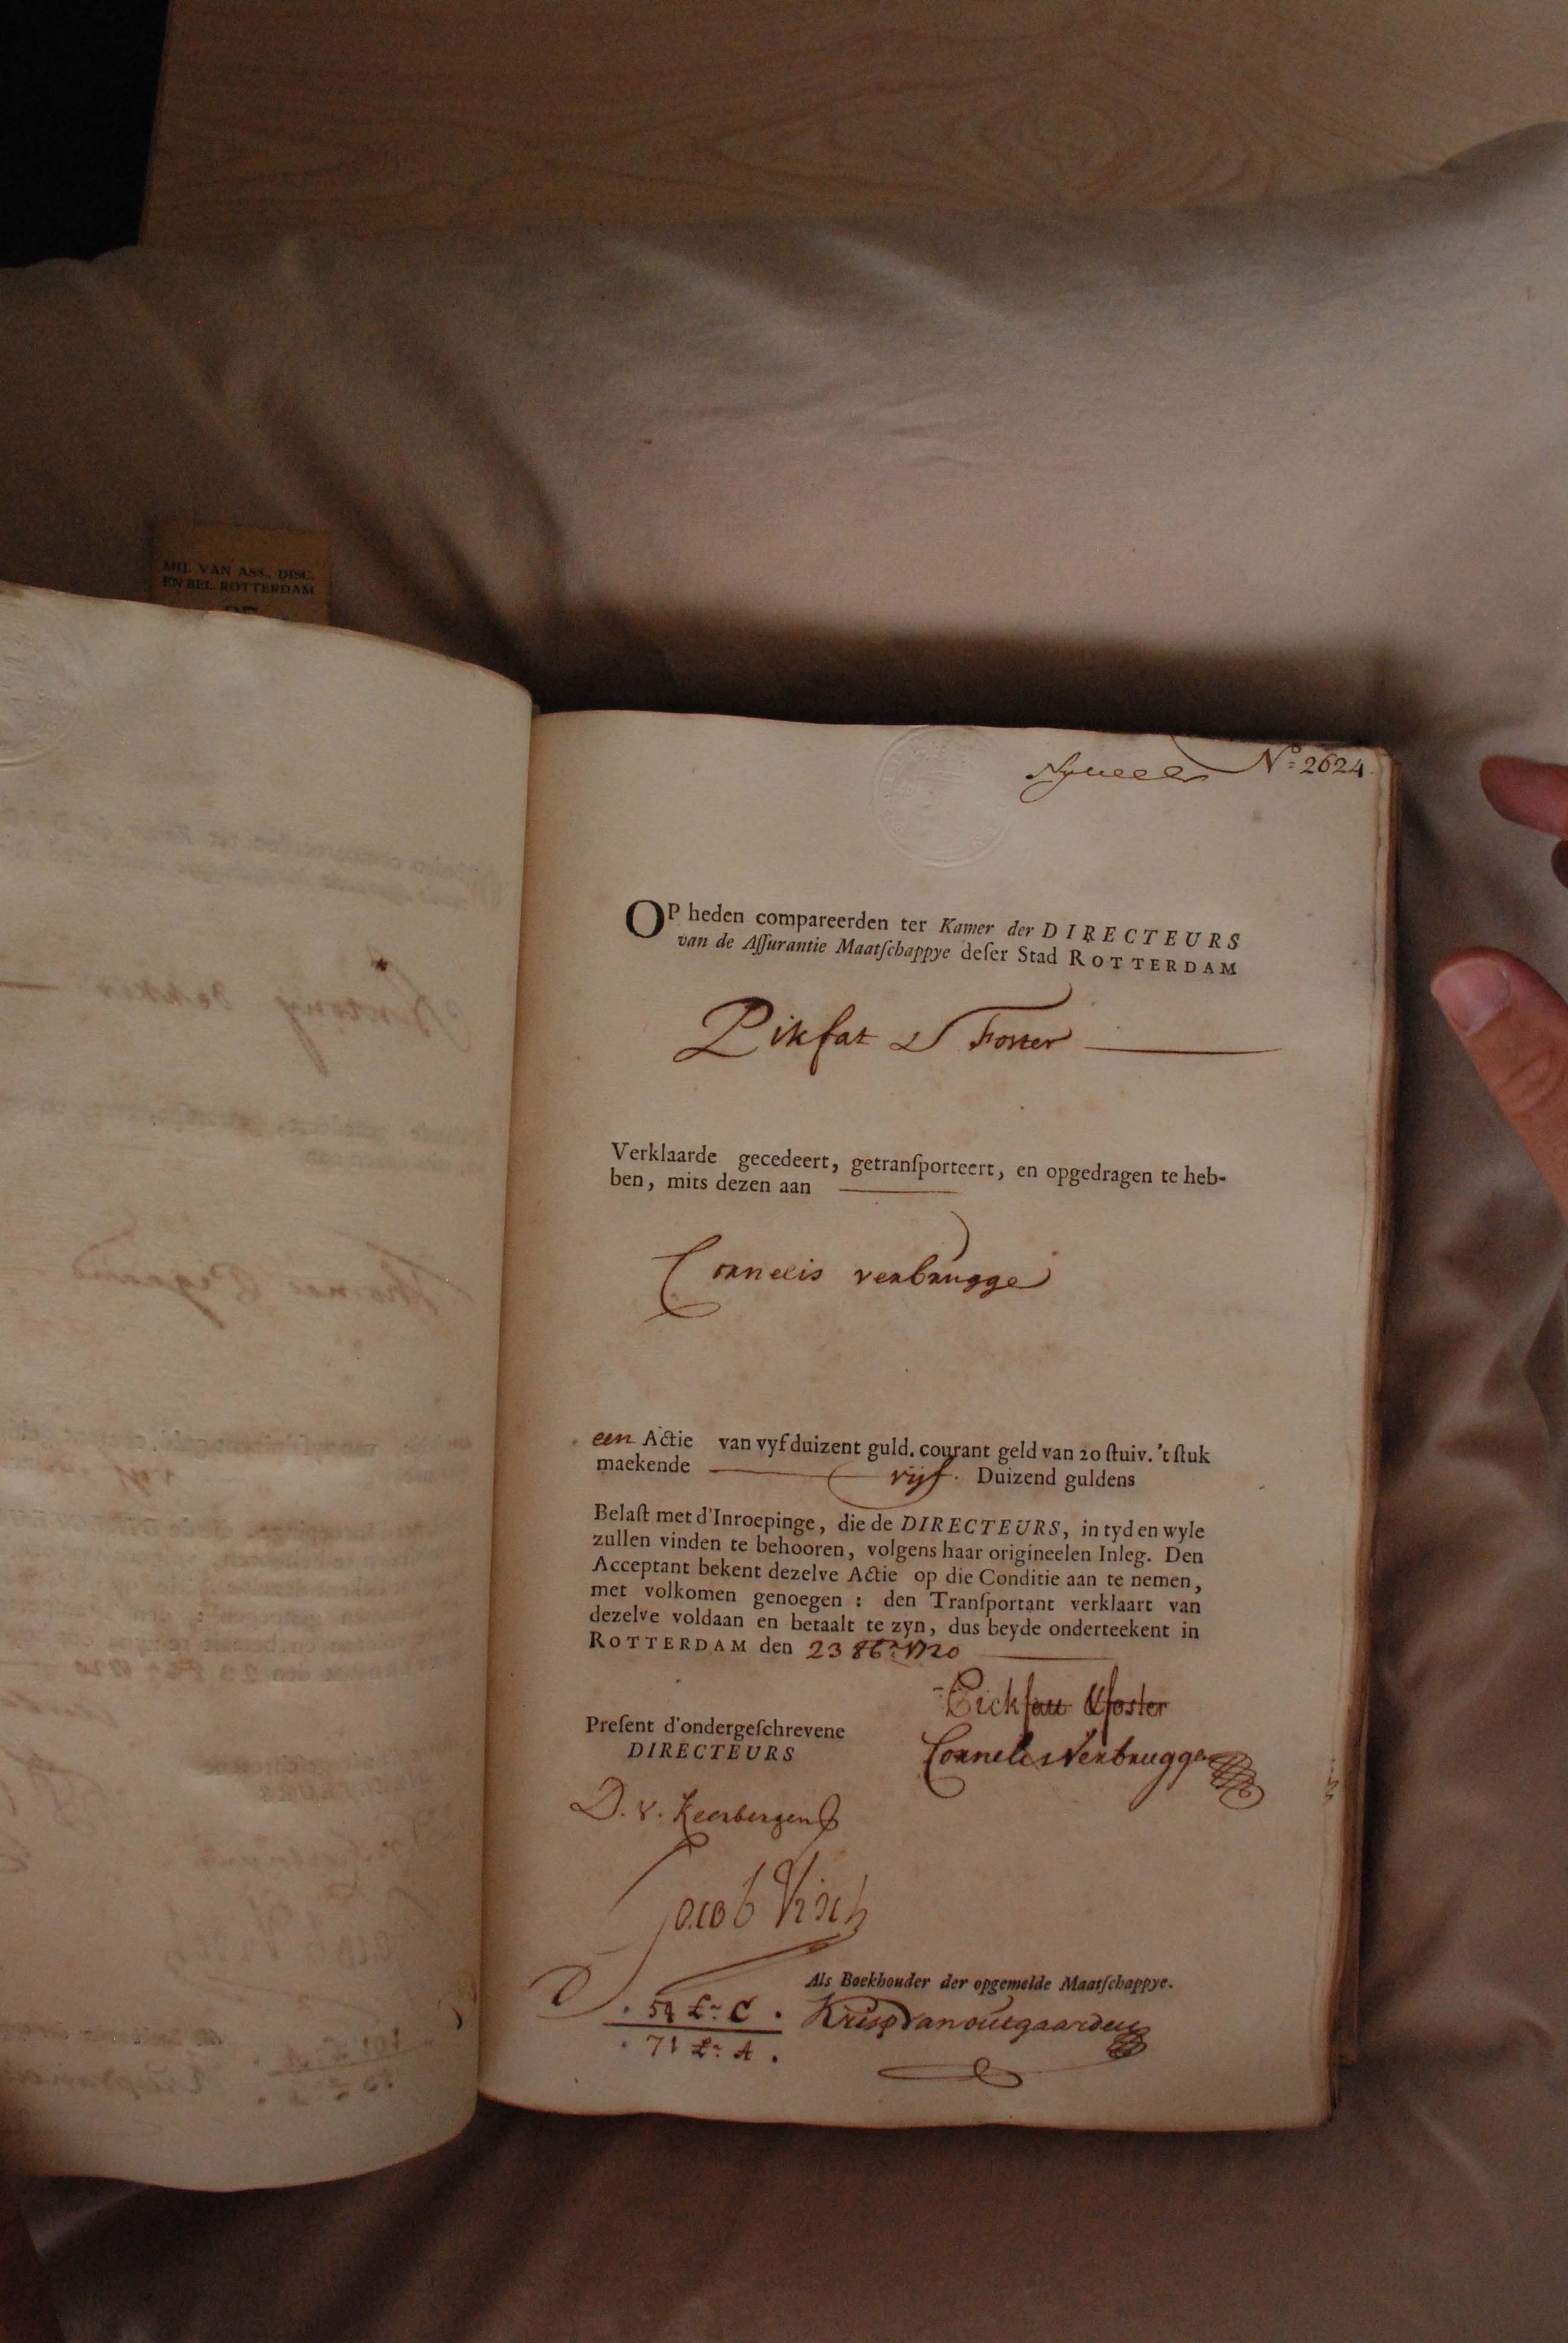 MIJ. VAN ASS., DISC.
EN BEL. ROTTERDAM
DE
Nº 2624.
OP heden compareerden ter Kamer der DIRECTEURS
van de Aſſurantie Maatſchappye deſer Stad ROTTERDAM
Pikfat & Foster
Verklaarde gecedeert, getranſporteert, en opgedragen te heb-
ben, mits dezen aan
Cornelis verbrugge
een Actie van vyf duizent guld. courant geld van 20 ſtuiv. 't ſtuk
maekende vijf. Duizend guldens
Belaſt met d'Inroepinge, die de DIRECTEURS, in tyd en wyle
zullen vinden te behooren, volgens haar origineelen Inleg. Den
Acceptant bekent dezelve Actie op die Conditie aan te nemen,
met volkomen genoegen : den Tranſportant verklaart van
dezelve voldaan en betaalt te zyn, dus beyde onderteekent in
ROTTERDAM den 23 8br 1720
Pickfatt & foster
Cornelis Verbrugge
Preſent d'ondergeſchrevene
DIRECTEURS
D. V. Keerbergen
Jacob Visch
Als Boekhouder der opgemelde Maatſchappye.
54 Lr C.
71 Lr A.